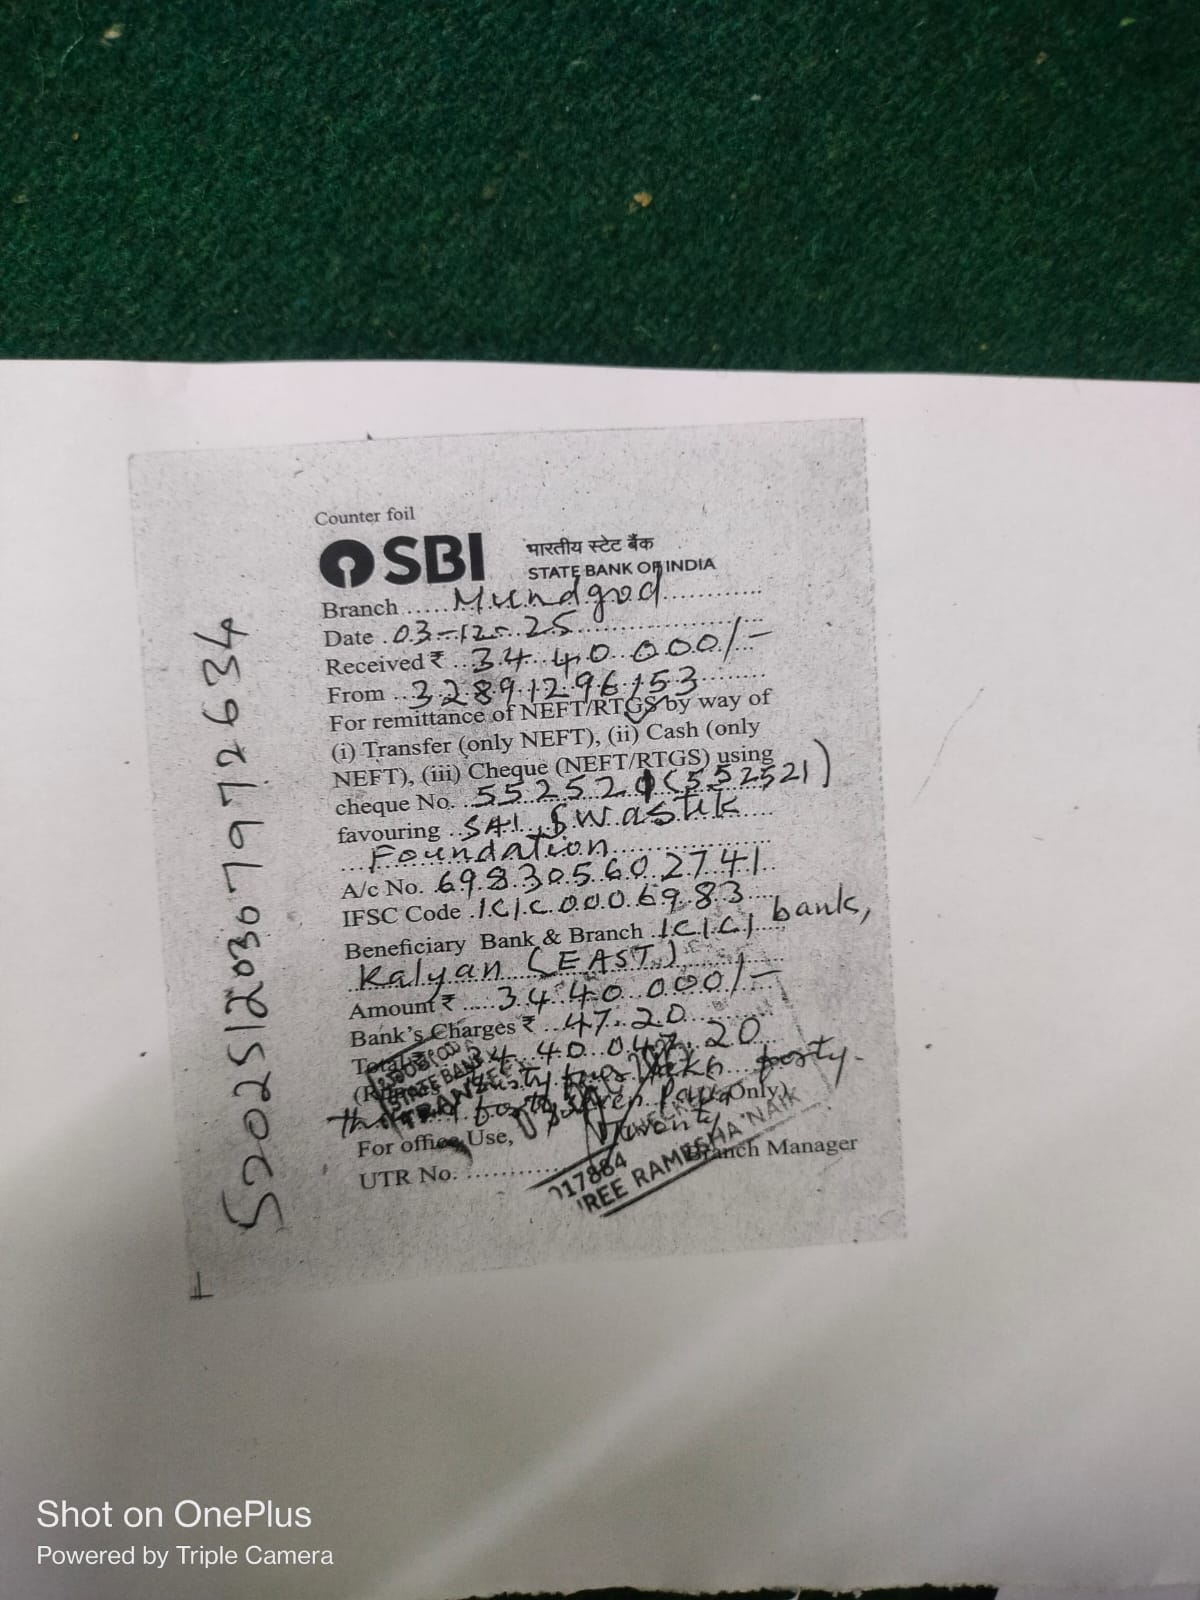 Counter foil
SBI भारतीय स्टेट बैंक
STATE BANK OF INDIA
Branch ...... Mundgod
Date . 03-12-25
Received ₹ ... 34 40 000/-
From ... 32891296153
For remittance of NEFT/RTGS by way of
(i) Transfer (only NEFT), (ii) Cash (only
NEFT), (iii) Cheque (NEFT/RTGS) using
cheque No. .. 552521 (552521)
favouring .. SAI Swastik
Foundation
A/c No. 698305602741
IFSC Code . ICIC0006983
Beneficiary Bank & Branch . ICICI bank,
Kalyan (EAST)
Amount ₹ .... 34 40 000/-
Bank's Charges ₹ .. 47.20
Total ₹ 34 40 047.20
forty-
STATE BANK
TRANSFER
Only)
For office Use,
UTR No. ............
Branch Manager
017884
REE RAMESHA NAIK
S20251203079726 34
Shot on OnePlus
Powered by Triple Camera